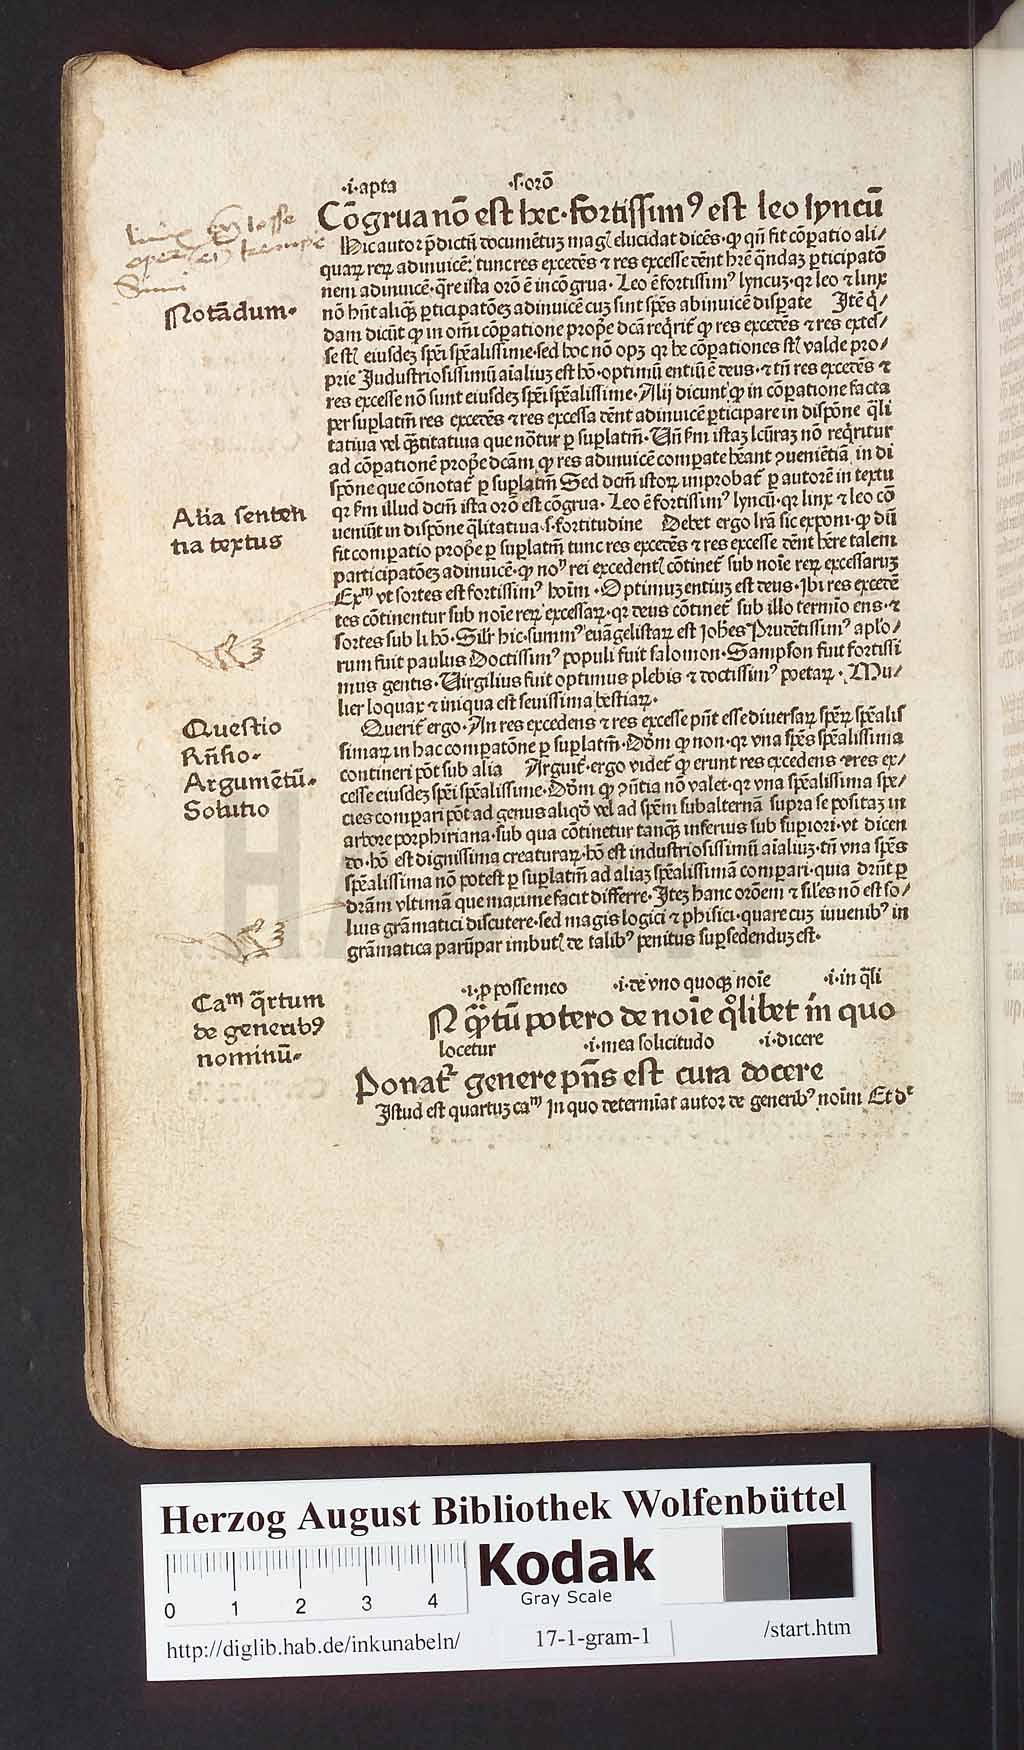 ·i·apta ·s·orō
Cōgrua nō est hec·fortissimꝰ est leo lyncū
Hic autor p̄dictū documētuʒ magꝭ elucidat dicēs·ꝙ qn̄ fit cōꝑatio ali/
quaꝝ reꝝ adinuicē: tunc res excedēs ⁊ res excesse dēnt hr̄e quādaʒ ꝑticipatō
nem adinuicē·q̄re ista orō ē incōgrua· Leo ē fortissimꝰ lyncuʒ·qꝛ leo ⁊ linx
nō hn̄t aliqᷓʒ ꝑticipatōeʒ adinuicē cuʒ sint sp̄es abinuicē disꝑate Itē q̇/
dam dicūt ꝙ in omni cōꝑatione prop̄e dcā reqͥritᷣ ꝙ res excedēs ⁊ res exces/
se st̄ eiusdeʒ sp̄ei sp̄ealissime·sed hoc nō opʒ qꝛ he cōꝑationes st̄ valde pro/
prie Industriosissimū aīaliuʒ est hō·optimū entiū ē deus·⁊ tn̄ res excedēs ⁊
res excesse nō sunt eiusdeʒ sp̄ei sp̄ealissime·Alij dicunt ꝙ in cōꝑatione facta
per suꝑlatm̄ res excedēs ⁊ res excessa dēnt adinuicē ꝑticipare in dispōne q̄li
tatiua vel qᷓ̄titatiua que nōtur ꝑ suꝑlatm̄·Un̄ ẜm istaʒ lcūraʒ nō reqͥritur
ad cōꝑationē prop̄e dcām ꝙ res adinuicē comꝑate hēant ꝯuenientiā in di
spōne que cōnotatᷣ ꝑ suꝑlatm̄ Sed dcm̄ istoꝝ improbatᷣ ꝑ autorē in textu
qꝛ ẜm illud dcm̄ ista orō est cōgrua· Leo ē fortissimꝰ lyncū·qꝛ linx ⁊ leo cō
ueniūt in dispōne q̄litatiua·s·fortitudine Debet ergo lr̄a sic exponi·ꝙ dū
fit comꝑatio prop̄e ꝑ suꝑlatm̄ tunc res excedēs ⁊ res excesse dēnt hēre talem
participatōeʒ adinuicē·ꝙ noⁿ rei excedentꝭ cōtinetᷣ sub noīe reꝝ excessaruʒ
Exᵐ vt sortes est fortissimꝰ hoīm·Optimuʒ entiuʒ est deus·Ibi res excedē
tes cōtinentur sub noīe reꝝ excessaꝝ·qꝛ deus cōtinetᷣ sub illo termīo ens·⁊
sortes sub li hō·Silr̄ hic·summꝰ euāgelistaꝝ est Johēs Prudētissimꝰ aplo/
rum fuit paulus Doctissimꝰ populi fuit salomon·Sampson fuit fortissi
mus gentis·Uirgilius fuit optimus plebis ⁊ doctissimꝰ poetaꝝ·Mu/
lier loquax ⁊ iniqua est seuissima bestiaꝝ·
Queritᷣ ergo·An res excedens ⁊ res excesse pn̄t esse diuersaꝝ sp̄eꝝ sp̄ealis
simaꝝ in hac comꝑatōne ꝑ suꝑlatm̄·Dōm ꝙ non·qꝛ vna sp̄es sp̄ealissima
contineri pōt sub alia Arguitᷣ·ergo videtᷣ ꝙ erunt res excedens ⁊ res ex/
cesse eiusdeʒ sp̄ei sp̄ealissime·Dōm ꝙ ꝯn̄tia nō valet·qꝛ vna sp̄ealissima spe/
cies compari pōt ad genus aliqḋ vel ad sp̄em subalternā supra se positaʒ in
arbore porphiriana·sub qua cōtinetur tanqᷓʒ inferius sub supiori·vt dicen
do·hō est dignissima creaturaꝝ·hō est industriosissimū aīaliuʒ·tn̄ vna sp̄es
sp̄ealissima nō potest ꝑ suꝑlatm̄ ad aliaʒ sp̄ealissimā compari·quia drn̄t ꝑ
dr̄am vltimā que maxime facit differre·Iteʒ hanc orōem ⁊ siles nō est so/
lius grāmatici discutere·sed magis logici ⁊ phisici·quare cuʒ iuuenibꝰ in
grāmatica parūpar imbutꝭ de talibꝰ penitus suꝑsedenduʒ est·
·i·ꝓ posse meo ·i·de vno quoqʒ noīe ·i·in q̄li
N qᷓʒtū potero de noīe qͦlibet in quo
locetur ·i·mea solicitudo ·i·dicere
Ponatᷣ genere pn̄s est cura docere
Istud est quartuʒ caᵐ In quo determīat autor de generibꝰ noīm Et dʳ
Notādum·
Alia senten
tia textus
Questio
Rn̄sio·
Argumētū·
Solutio
Caᵐ q̄rtum
de generibꝰ
nominū·
Herzog August Bibliothek Wolfenbüttel
Kodak
Gray Scale
0 1 2 3 4
http://diglib.hab.de/inkunabeln/ 17-1-gram-1 /start.htm
HAB